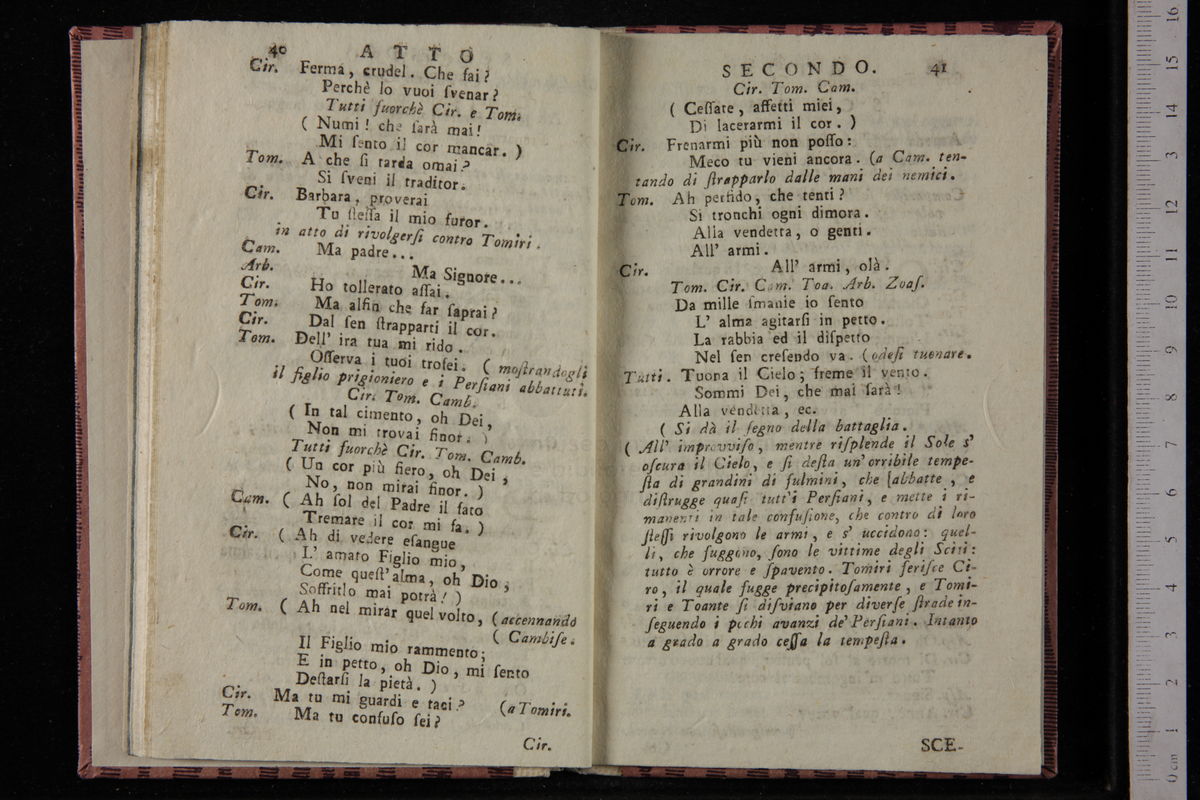 40 ATTO
Cir. Ferma, crudel. Che fai?
Perchè lo vuoi ſvenar?
Tutti fuorchè Cir. e Tom.
( Numi! che ſarà mai!
Mi ſento il cor mancar. )
Tom. A che ſi tarda omai?
Si ſveni il traditor.
Cir. Barbara, proverai
Tu ſteſſa il mio furor.
in atto di rivolgerſi contro Tomiri.
Cam. Ma padre...
Arb. Ma Signore...
Cir. Ho tollerato aſſai.
Tom. Ma alfin che far ſaprai?
Cir. Dal ſen ſtrapparti il cor.
Tom. Dell' ira tua mi rido.
Oſſerva i tuoi trofei. ( moſtrandogli
il figlio prigioniero e i Perſiani abbattuti.
Cir. Tom. Camb.
( In tal cimento, oh Dei,
Non mi trovai finor. )
Tutti fuorchè Cir. Tom. Camb.
( Un cor più fiero, oh Dei,
No, non mirai finor. )
Cam. ( Ah ſol del Padre il fato
Tremare il cor mi fa. )
Cir. ( Ah di vedere eſangue
L' amato Figlio mio,
Come queſt'alma, oh Dio,
Soffrirlo mai potrà! )
Tom. ( Ah nel mirar quel volto, (accennando
( Cambiſe.
Il Figlio mio rammento;
E in petto, oh Dio, mi ſento
Deſtarſi la pietà. )
Cir. Ma tu mi guardi e taci? (a Tomiri.
Tom. Ma tu confuſo ſei?
Cir.
SECONDO. 41
Cir. Tom. Cam.
( Ceſſate, affetti miei,
Di lacerarmi il cor. )
Cir. Frenarmi più non poſſo:
Meco tu vieni ancora. (a Cam. ten-
tando di ſtrapparlo dalle mani dei nemici.
Tom. Ah perfido, che tenti?
Si tronchi ogni dimora.
Alla vendetta, o genti.
All' armi.
Cir. All' armi, olà.
Tom. Cir. Cam. Toa. Arb. Zoaſ.
Da mille ſmanie io ſento
L' alma agitarſi in petto.
La rabbia ed il diſpetto
Nel ſen creſendo va. (odeſi tuonare.
Tutti. Tuona il Cielo; freme il vento.
Sommi Dei, che mai ſarà!
Alla vendetta, ec.
( Si dà il ſegno della battaglia.
( All' improvviſo, mentre riſplende il Sole s'
oſcura il Cielo, e ſi deſta un' orribile tempe-
ſta di grandini di fulmini, che ſabbatte, e
diſtrugge quaſi tutt'i Perſiani, e mette i ri-
manenti in tale confuſione, che contro di loro
ſteſſi rivolgono le armi, e s' uccidono: quel-
li, che fuggono, ſono le vittime degli Sciti:
tutto è orrore e ſpavento. Tomiri feriſce Ci-
ro, il quale fugge precipitoſamente, e Tomi-
ri e Toante ſi diſviano per diverſe ſtrade in-
ſeguendo i pochi avanzi de' Perſiani. Intanto
a grado a grado ceſſa la tempeſta.
SCE-
0 cm 1 2 3 4 5 6 7 8 9 10 11 12 13 14 15 16